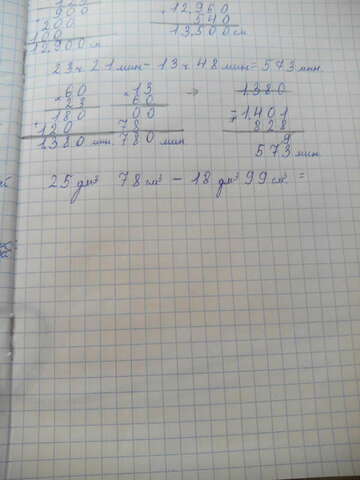 800
200
100
12900 см
12960
540
13500 см
23 ч 21 мин - 13 ч 48 мин = 573 мин.
60
× 23
180
120
1380 мин.
× 13
60
00
78
780 мин
→ 1380
1401
828
573 мин
25 дм³ 78 см³ - 18 дм³ 99 см³ =